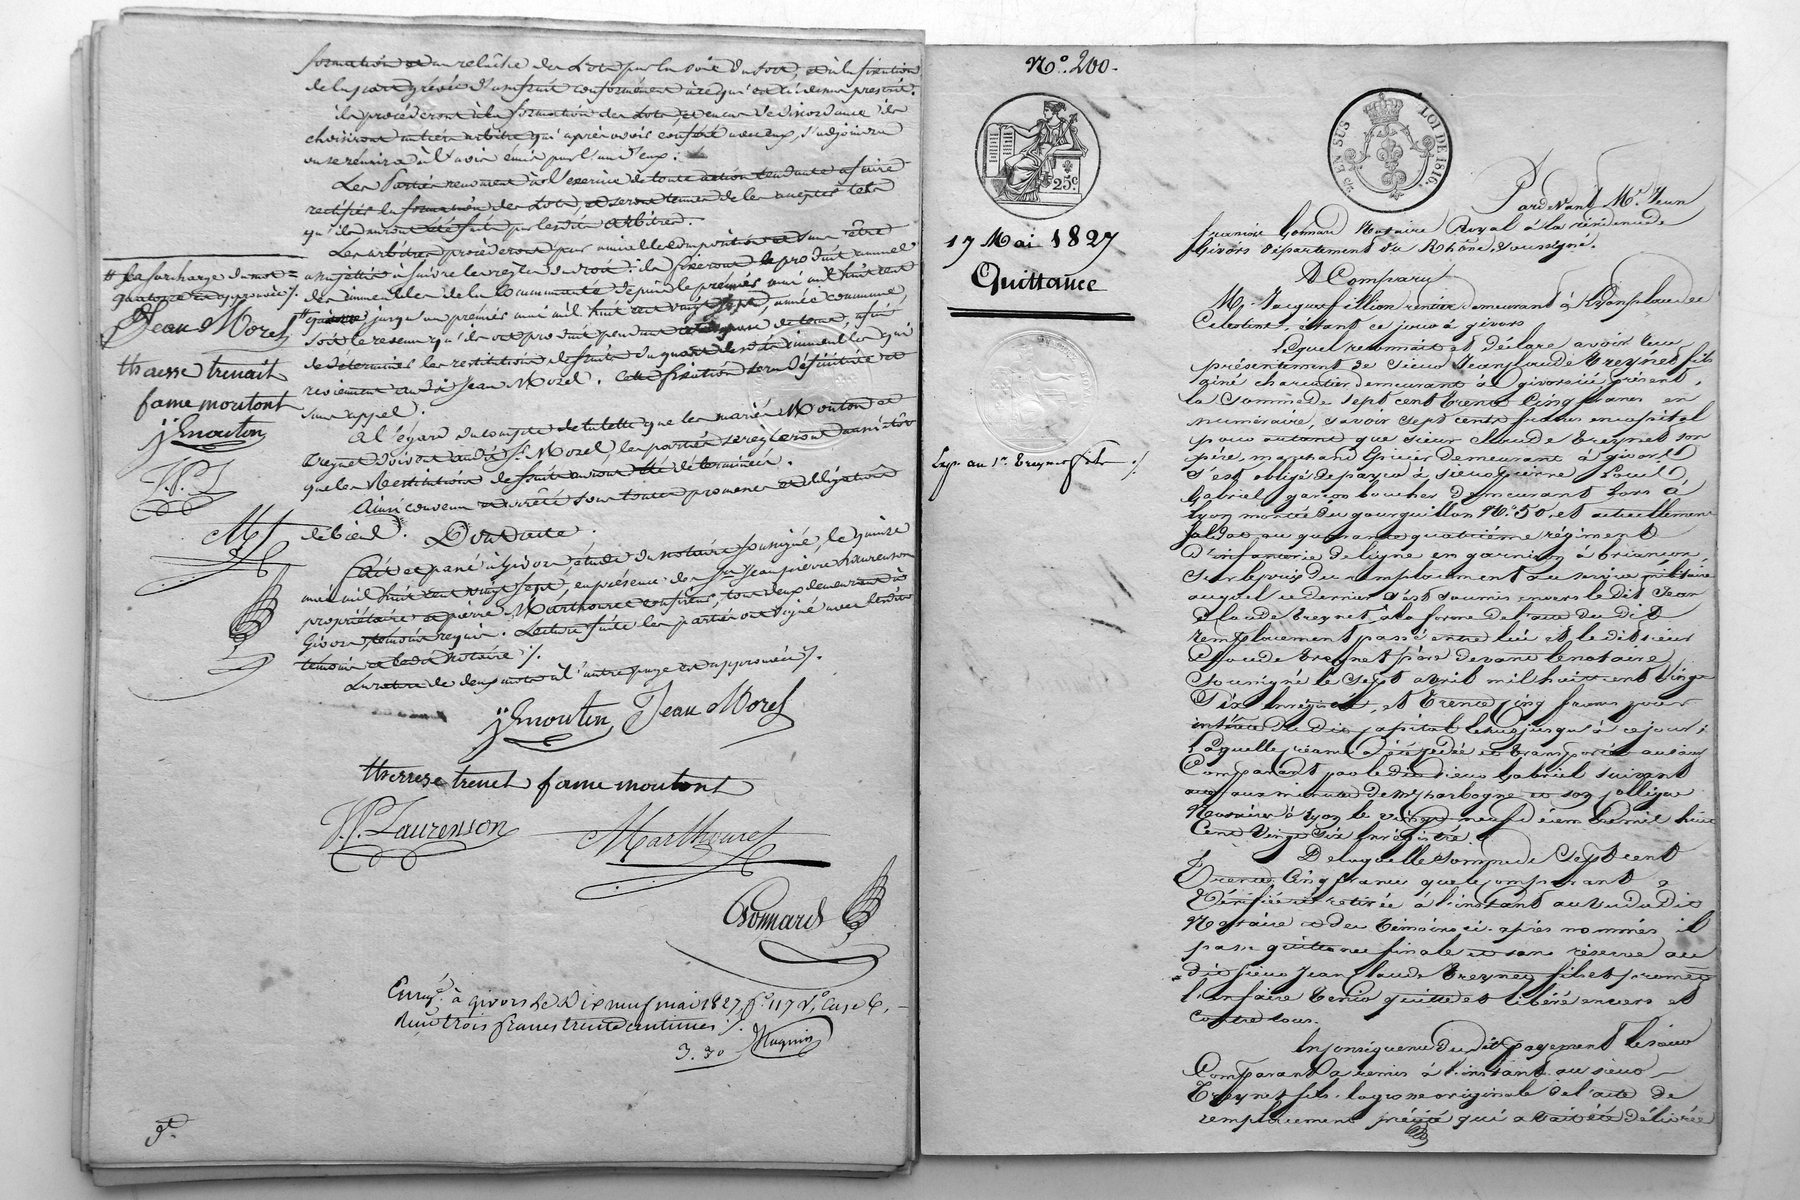 formation et au relâche des Lots par la voie du sort, et à la fixation
de la part grévée d'usufruit conformément à ce qui est ci-dessus prescrit.
ils procéderont à la formation des Lots et en cas de discordance ils
choisiront un tiers arbitre qui après avoir conféré avec eux, s'adjoindra
ou se réunira à l'avis émis par l'un d'eux.
Les Parties renoncent à l'exercice de toute action tendante à faire
rectifier la formation des Lots, et seront tenues de les accepter tels
qu'ils auront été faits par lesdits arbitres.
Les arbitres procéderont par amiable composition et sans être
assujettis à suivre les règles du droit; ils fixeront le produit annuel
des immeubles de la Communauté depuis le premier mai mil huit cent
quatorze jusqu'au premier mai mil huit cent vingt sept, année commune,
soit le revenu qu'ils ont produit pendant cet espace de tems, afin
de déterminer les restitutions de fruits du quart desdits immeubles qui
reviennent audit Jean Morel. Cette fixation sera définitive et
sans appel.
A l'égard du compte de tutelle que les mariés Mouton et
Treynet doivent audit Sr. Morel, les parties se régleront aussitôt
que les Restitutions de fruits auront été déterminées.
Ainsi convenu et arrêté sous toutes promesses et obligations
de biens. Dont acte.
Fait et passé à Givors, étude du notaire soussigné, le quinze
mai mil huit cent vingt sept, en présence des Srs. Jean pierre Laurenson
propriétaire et pierre Marthouret confiseur, tous deux demeurant à
Givors témoins requis. Lecture faite les parties ont signé avec lesdits
témoins et ledit Notaire ./.
La rature de deux mots à l'autre page est approuvée ./.
jj mouton Jean Morel
therese trenet fame moutont
J. P. Laurenson
Marthouret
Bonnard
Enreg. à givors le Dix neuf mai 1827, fo. 117 Vo. Case 6.
Reçu trois francs trente centimes ./.
3. 30
# La surcharge du mot =
quatorze est approuvée ./.
Jean Morel
therese trenait
fame moutont
jj mouton
J. P. L
M
Nº. 200.
25c
17 Mai 1827
Quittance
Exp. au Sr. Treynet fils ./.
EN SUS
LOI DE 1816.
Pardevant Me. Jean
francois Bonnard Notaire Royal à la résidence de
Givors département du Rhône, soussigné.
A Comparu
Mr. Jacques fillion rentier demeurant à Lyon place des
Celestins, étant ce jour à givors
Lequel reconnait et déclare avoir reçu
présentement de sieur Jean Claude Treynet fils
ainé charcutier demeurant à givors ici présent,
la Somme de sept cent trente Cinq francs en
numéraire, savoir sept cents francs en capital
pour autant que sieur Claude Treynet son
père, marchand épicier demeurant à givors
s'est obligé de payer à sieur
Gabriel garçon boucher demeurant lors à
Lyon montée du gourguillon No. 50. et actuellement
soldat au quarante quatrième régiment
d'infanterie de ligne en garnison à briançon,
sur le prix du remplacement au service militaire
auquel ce dernier s'est soumis envers le dit Jean
Claude Treynet, à la forme de l'acte du dit
remplacement passé entre lui et le dit sieur
Claude Treynet père devant le notaire
Soussigné le Sept avril mil huit cent Vingt
Six enregistré, et Trente Cinq francs pour
intérêts du dit capital échus jusqu'à ce jour;
Laquelle créance a été cédée et transportée au sieur
Comparant par le dit sieur Gabriel suivant
acte aux minutes de Me. harbogne et son collègue
Notaires à Lyon le vingt neuf décembre mil huit
Cent Vingt Six enregistré.
De laquelle somme de Sept cent
Trente Cinq francs que le comparant a
Vérifiée et retirée à l'instant au vu du dit
Notaire et des témoins ci-après nommés il
passe quittance finale et sans réserve au
dit sieur Jean Claude Treynet fils et promet
l'en faire tenir quitte et libéré envers et
contre tous.
En conséquence du dit payement le sieur
Comparant a remis à l'instant au sieur
Treynet fils la grosse originale de l'acte de
remplacement précité qui avait été délivrée